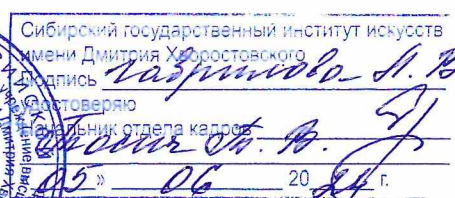 Сибирский государственный институт искусств
имени Дмитрия Хворостовского
Подпись Гаврилова Л. В
удостоверяю
Начальник отдела кадров
Т. В.
05 » 06 20 24 г.